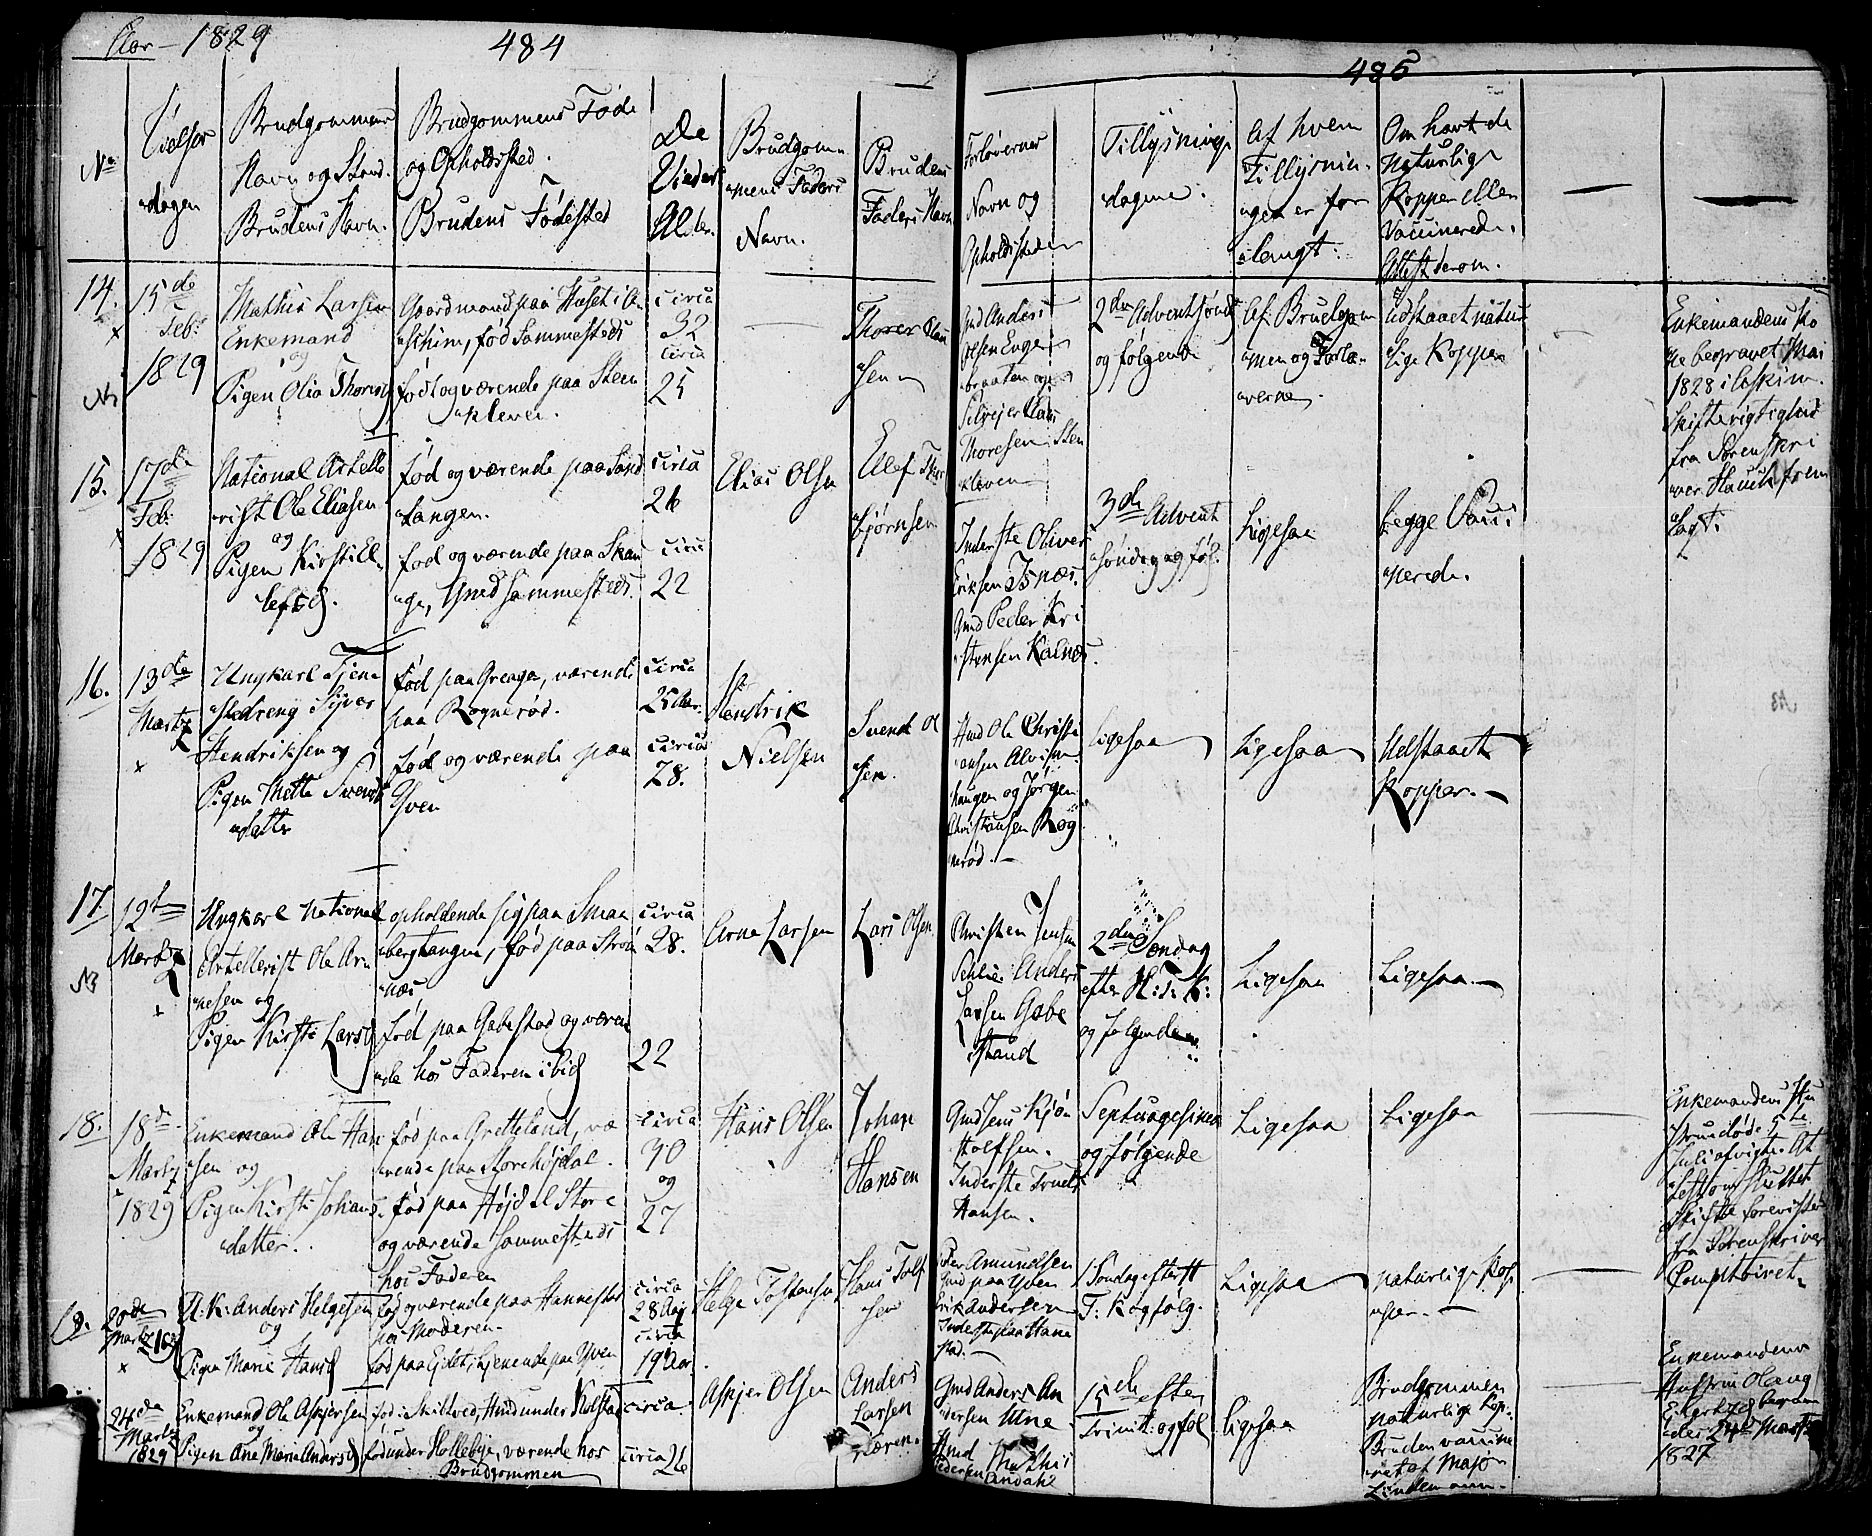 Aar - 1829
484
485
No
Vielses
dagen
Brudgommens
Navn og Stand.
Brudens Navn.
Brudgommens Føde
og Opholdssted.
Brudens Fødested
De
Viedes
Alder.
Brudgom
mens Faders
Navn.
Brudens
Faders Navn
Forlovernes
Navn og
Opholdssteder
Tillysnings
dagene.
Af hvem
Tillysnin
gen er for
langt.
Om havt de
Naturlige
Kopper eller
Vaccinerede.
Attest derom.
14.
15de
Feb:
1829
Mathis Larsen
Enkemand
og
Pigen Olia
Gaardmand paa Huset i
fød Sammesteds
født og værende paa Steen
kleven.
circa
32
circa
25
Thorer
sen
Gmd Anders
Olsen Enge
braaten og
Thoresen Sten
kleven
2den Adventsønd
og følgende
Af Brudgom
men og Forlo
verne.
Udstaaet natur
lige Kopper
Enkemandens Ko
ne begravet Mai
1828 i Eskim.
Skifterigtighed
fra Sorenskri
ver Hauch frem
lagt.
15.
17de
Feb:
1829
National Artille
rist Ole Eliasen
og
Pigen Kirsti El
lefsd.
Fød og værende paa Sand
tangen.
fød og værende paa
sammesteds.
circa
26
circa
22
Elias Olsen
Ellef Thor
bjørnsen
Inderste Oliver
Eriksen Isnæs.
Gmd Peder Kri
stensen Kalnæs.
3de Advent
søndag og føl.
Ligesaa
begge Vacci
nerede.
16.
13de
Martz
Ungkarl Tjene
stedreng Syver
Hendriksen og
Pigen Mette Svends
datter
fød paa Grenga, værende
paa Rognerød.
fød og værende paa
Yven
circa
25 Aar.
circa
28.
Hendrik
Nielsen
Svend Ol
sen.
Hmd Ole Christi
ansen Alvim
haugen og Jørgen
Christiansen Rog
nerød.
Ligesaa
Ligesaa
Udstaaet
Kopper.
17.
12te
Martz
Ungkarl National
Artellerist Ole Ar
nesen og
Pigen Kirsti Larsd
opholdende sig paa Smaa
bergtangen, fød paa Strøm
næs
fød paa Gabestad og væren
de hos Faderen ibid
circa
28.
22
Arne Larsen
Lars Olsen.
Christen Jensen
Anders
Larsen Gabe
stad
2den Søndag
efter H: 3: K:
og følgende
Ligesaa
Ligesaa.
18.
18de
Martz
1829
Enkemand Ole Han
sen og
Pigen Kirsti Johans
datter.
fød paa Gretteland, væ
rende paa Storehøjdal.
fød paa Højdal Store
og værende sammesteds
hos Faderen
circa
30
og
27
Hans Olsen
Johan
Hansen
Gmd Jens Kjøn
Rolfsen.
Inderste Truels
Hansen.
Septuagesima
og følgende
Ligesaa
Ligesaa
Enkemandens Hu
strue døde 5te
Juli afvigte. At
test om sluttet
Skifte forevistes
fra Sorenskriver
Comptoiret.
19.
20de
Martz 1829
U. K. Anders Helgesen
og
Pigen Marie Hansd
fød og værende paa Hannestad
hos Moderen
fød paa Ejdet, tjenende paa Yven
circa
28 Aar
circa
19 Aar.
Helge Tostensen
Hans Tolf
sen
Peder Amundsen
Gmd paa Yven
Erik Andersen
Inderste paa Hanne
stad.
1 Søndag efter H
3: K og følg.
Ligesaa
naturlige Kop
per.
24de
Martz
1829
Enkemand Ole Asbjersen
og
Pigen Ane Marie Andersd
fød i Skiltved, Hmd under Kolstad
fød under Hollebye, værende hos
Brudgommen
circa
circa 26
Asbjer Olsen
Anders
Larsen
Gmd Anders An
dersen Une
Hmd Mathis
Pedersen
15de efter
Trinit. og føl
Ligesaa
Brudgommen
naturlige Kop.
Bruden vaccine
ret af Major
Lindemann.
Enkemandens
Hustru
24de Martz
1827